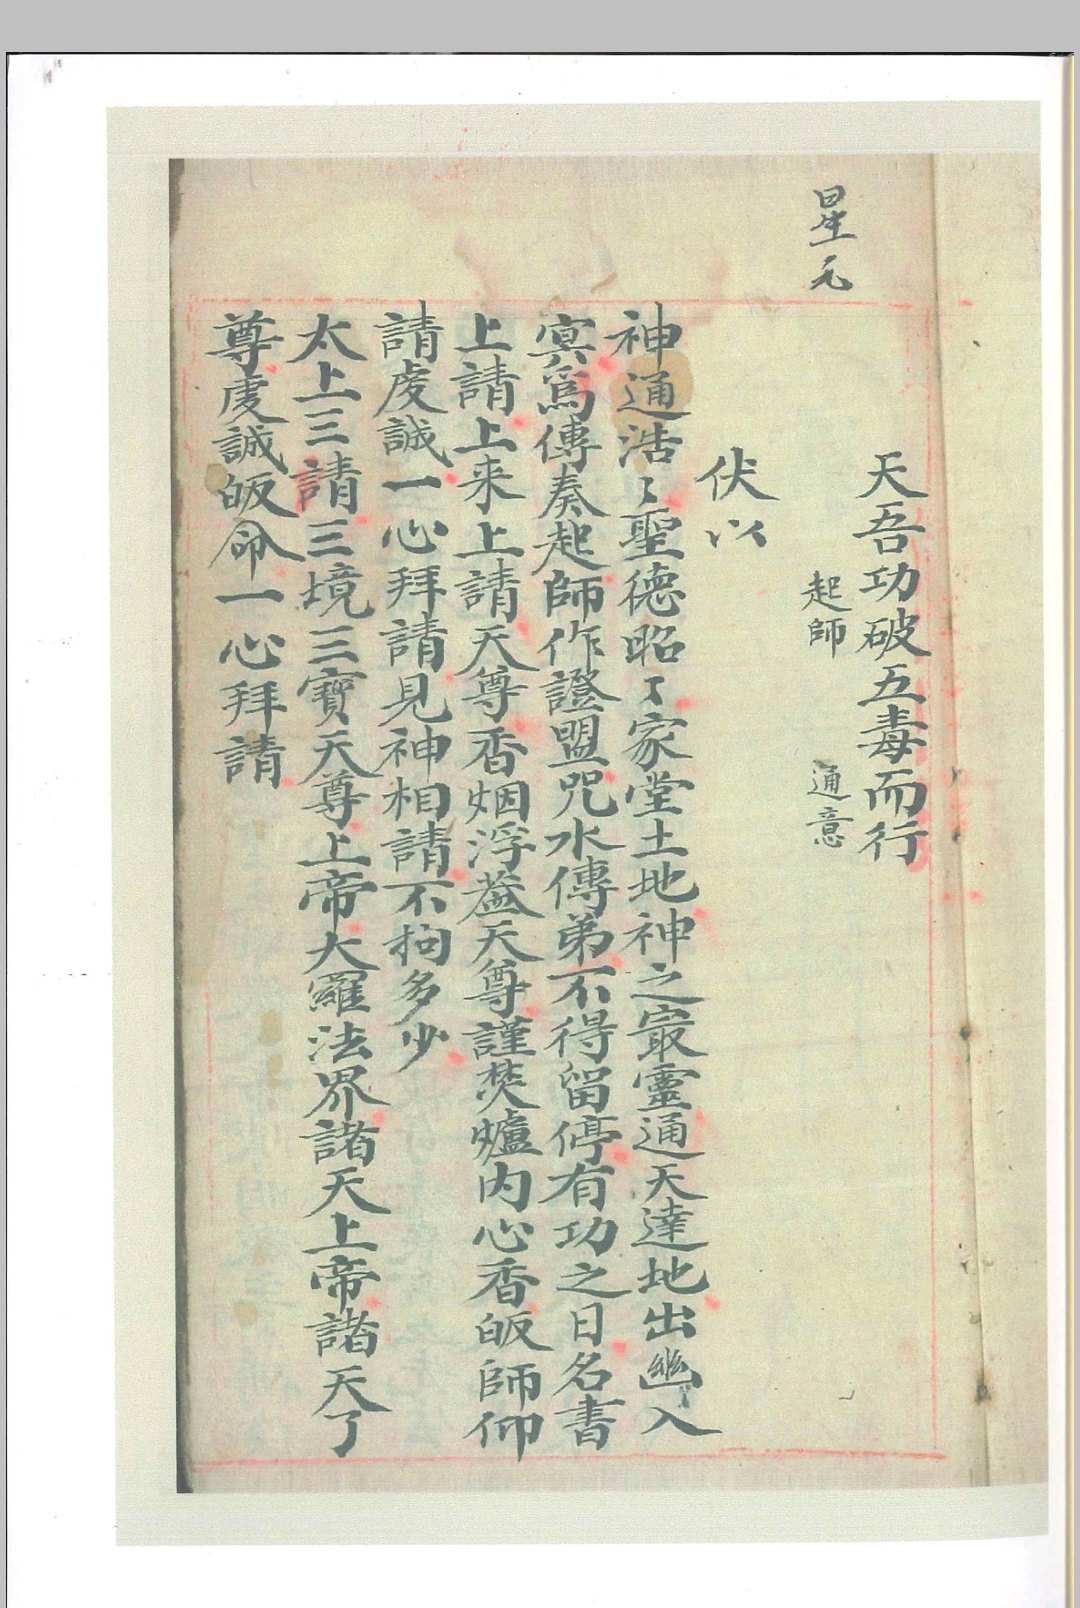 星元
天吾功破五毒而行
起師　通意
伏以
神通浩〻聖德昭〻家堂土地神之㝡靈通天達地出幽入
㝠爲傳奏起師作證盟咒水傳弟不得留停有功之日名書
上請上来上請天尊香烟浮蓋天尊謹焚爐内心香皈師仰
請虔誠一心拜請見神相請不拘多少
太上三請三境三寶天尊上帝大羅法界諸天上帝諸天了
尊虔誠皈命一心拜請